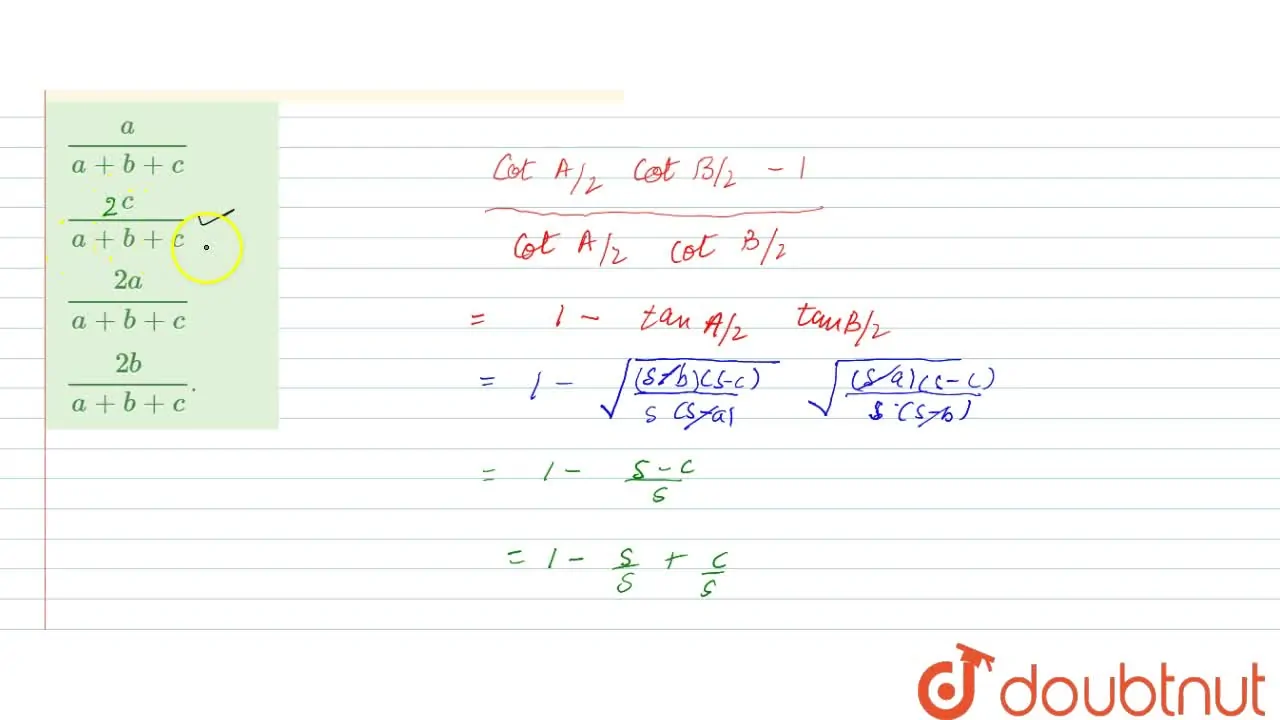 a
a + b + c
2 c
a + b + c
2a
a + b + c
2b
a + b + c.
Cot A/2 Cot B/2 - 1
Cot A/2 cot B/2
= 1 - tan A/2 tan B/2
= 1 - √(s-b)(s-c) √(s-a)(s-c)
s (s-a) s·(s-b)
= 1 - s-c
s
= 1 - s + c
s s
doubtnut